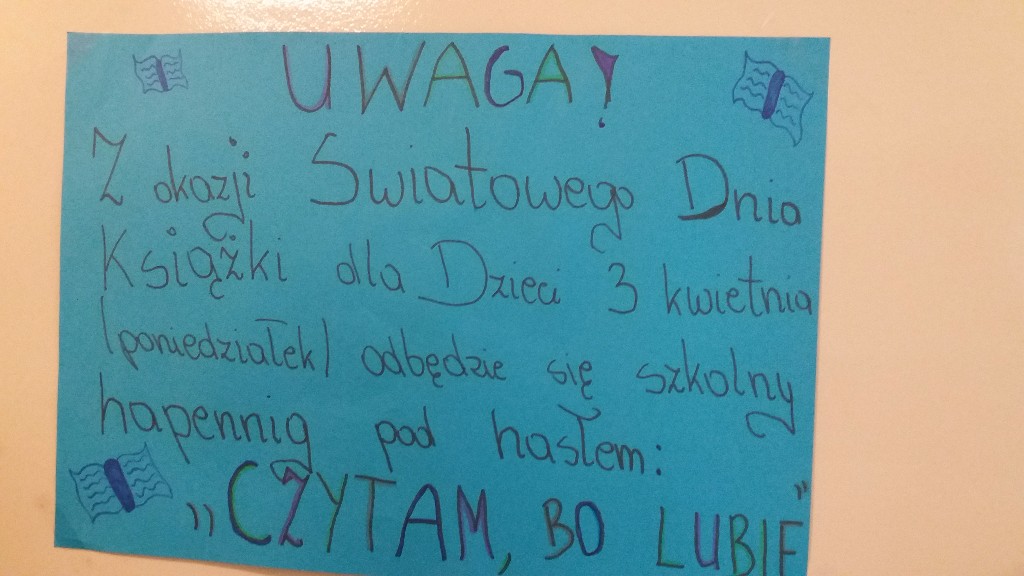 UWAGA!
Z okazji Światowego Dnia
Książki dla Dzieci 3 kwietnia
(poniedziałek) odbędzie się szkolny
hapennig pod hasłem:
„CZYTAM, BO LUBIĘ"